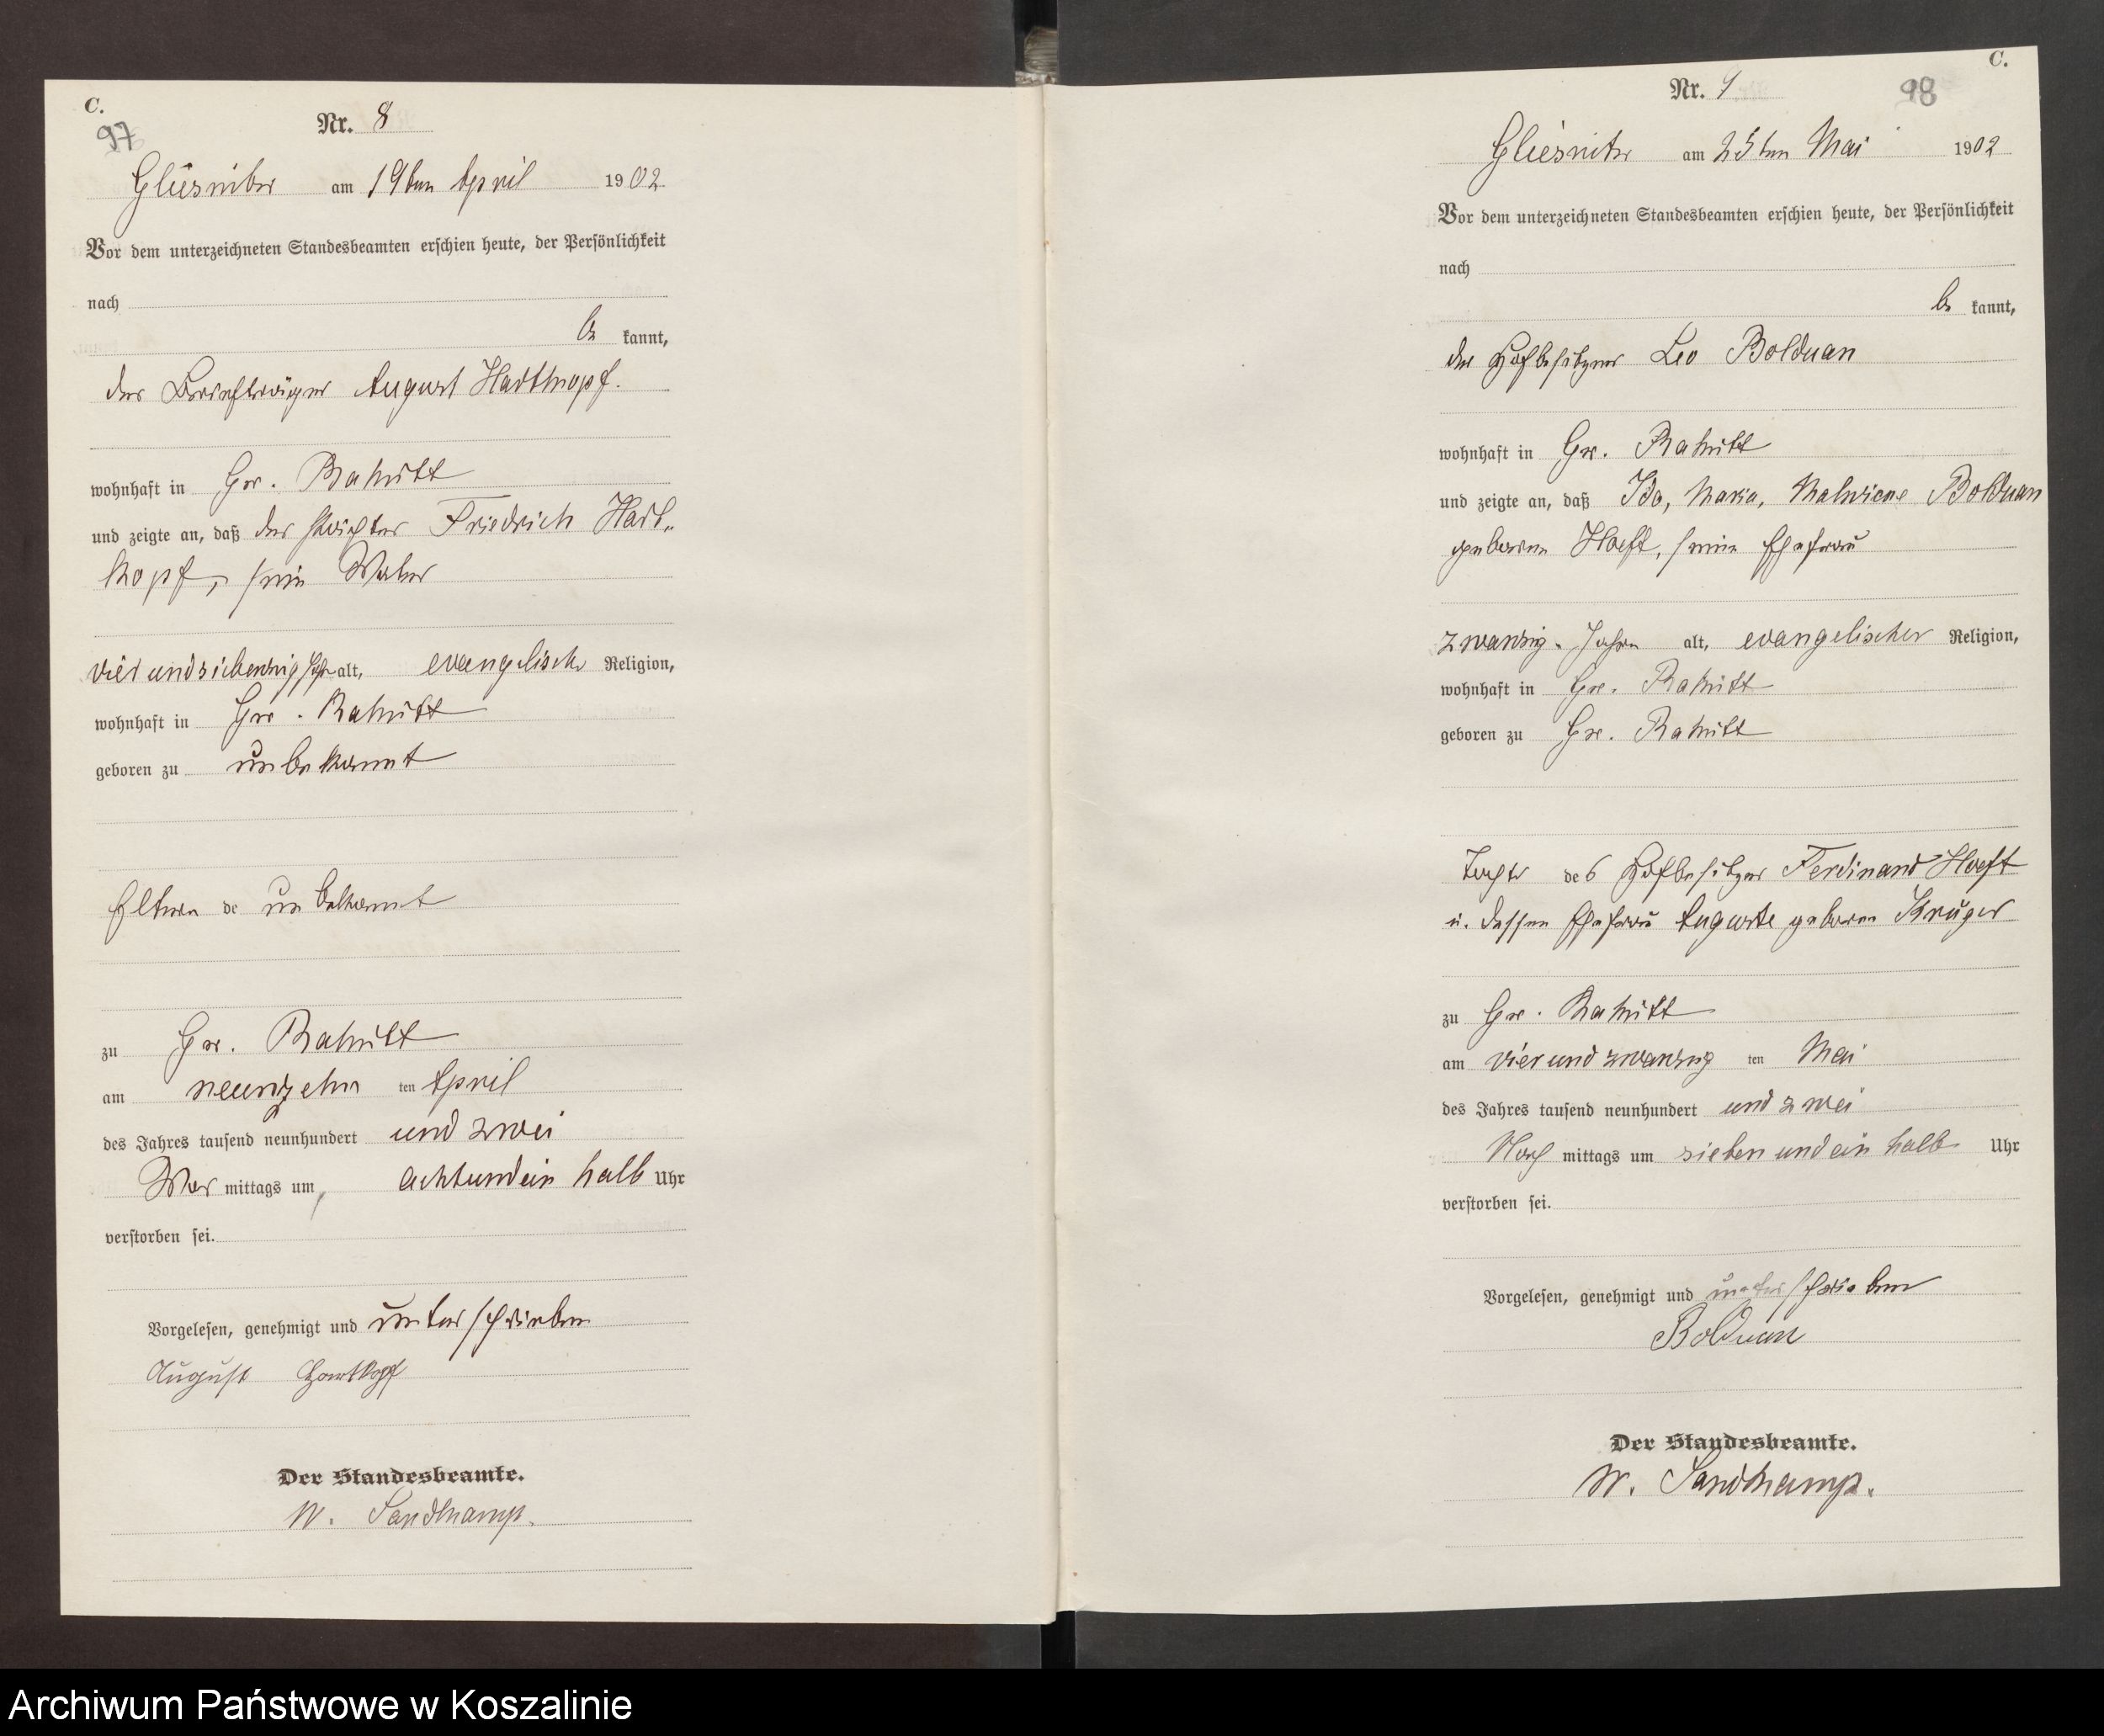 C.
97
Nr. 8
Gliesnitz am 19ten April 1902
Vor dem unterzeichneten Standesbeamten erschien heute, der Persönlichkeit
nach
be kannt,
der Briefträger August Hartkopf.
wohnhaft in Gr. Rakitt
und zeigte an, daß der Friedrich Hart„
kopf, sein Vater
vierundsiebenzig Jahr alt, evangelischer Religion,
wohnhaft in Gr. Rakitt
geboren zu unbekannt
Eltern de unbekannt
zu Gr. Rakitt
am neunzehn ten April
des Jahres tausend neunhundert und zwei
Vor mittags um achtundein halb Uhr
verstorben sei.
Vorgelesen, genehmigt und unterschrieben
August Hartkopf
Der Standesbeamte.
W. Sandkamp.
C.
98
Nr. 9
Gliesnitz am 25ten Mai 1902
Vor dem unterzeichneten Standesbeamten erschien heute, der Persönlichkeit
nach
be kannt,
der Hofbesitzer Leo Bolduan
wohnhaft in Gr. Rakitt
und zeigte an, daß Ida, Maria, Malwiene Bolduan
geborene Hoeft, seine Ehefrau
zwanzig Jahre alt, evangelischer Religion,
wohnhaft in Gr. Rakitt
geboren zu Gr. Rakitt
Tochter des Hofbesitzer Ferdinand Hoeft
u. dessen Ehefrau Auguste geborene Krüger
zu Gr. Rakitt
am vierundzwanzig ten Mai
des Jahres tausend neunhundert und zwei
Nach mittags um sieben undein halb Uhr
verstorben sei.
Vorgelesen, genehmigt und unterschrieben
Bolduan
Der Standesbeamte.
W. Sandkamp.
Archiwum Państwowe w Koszalinie